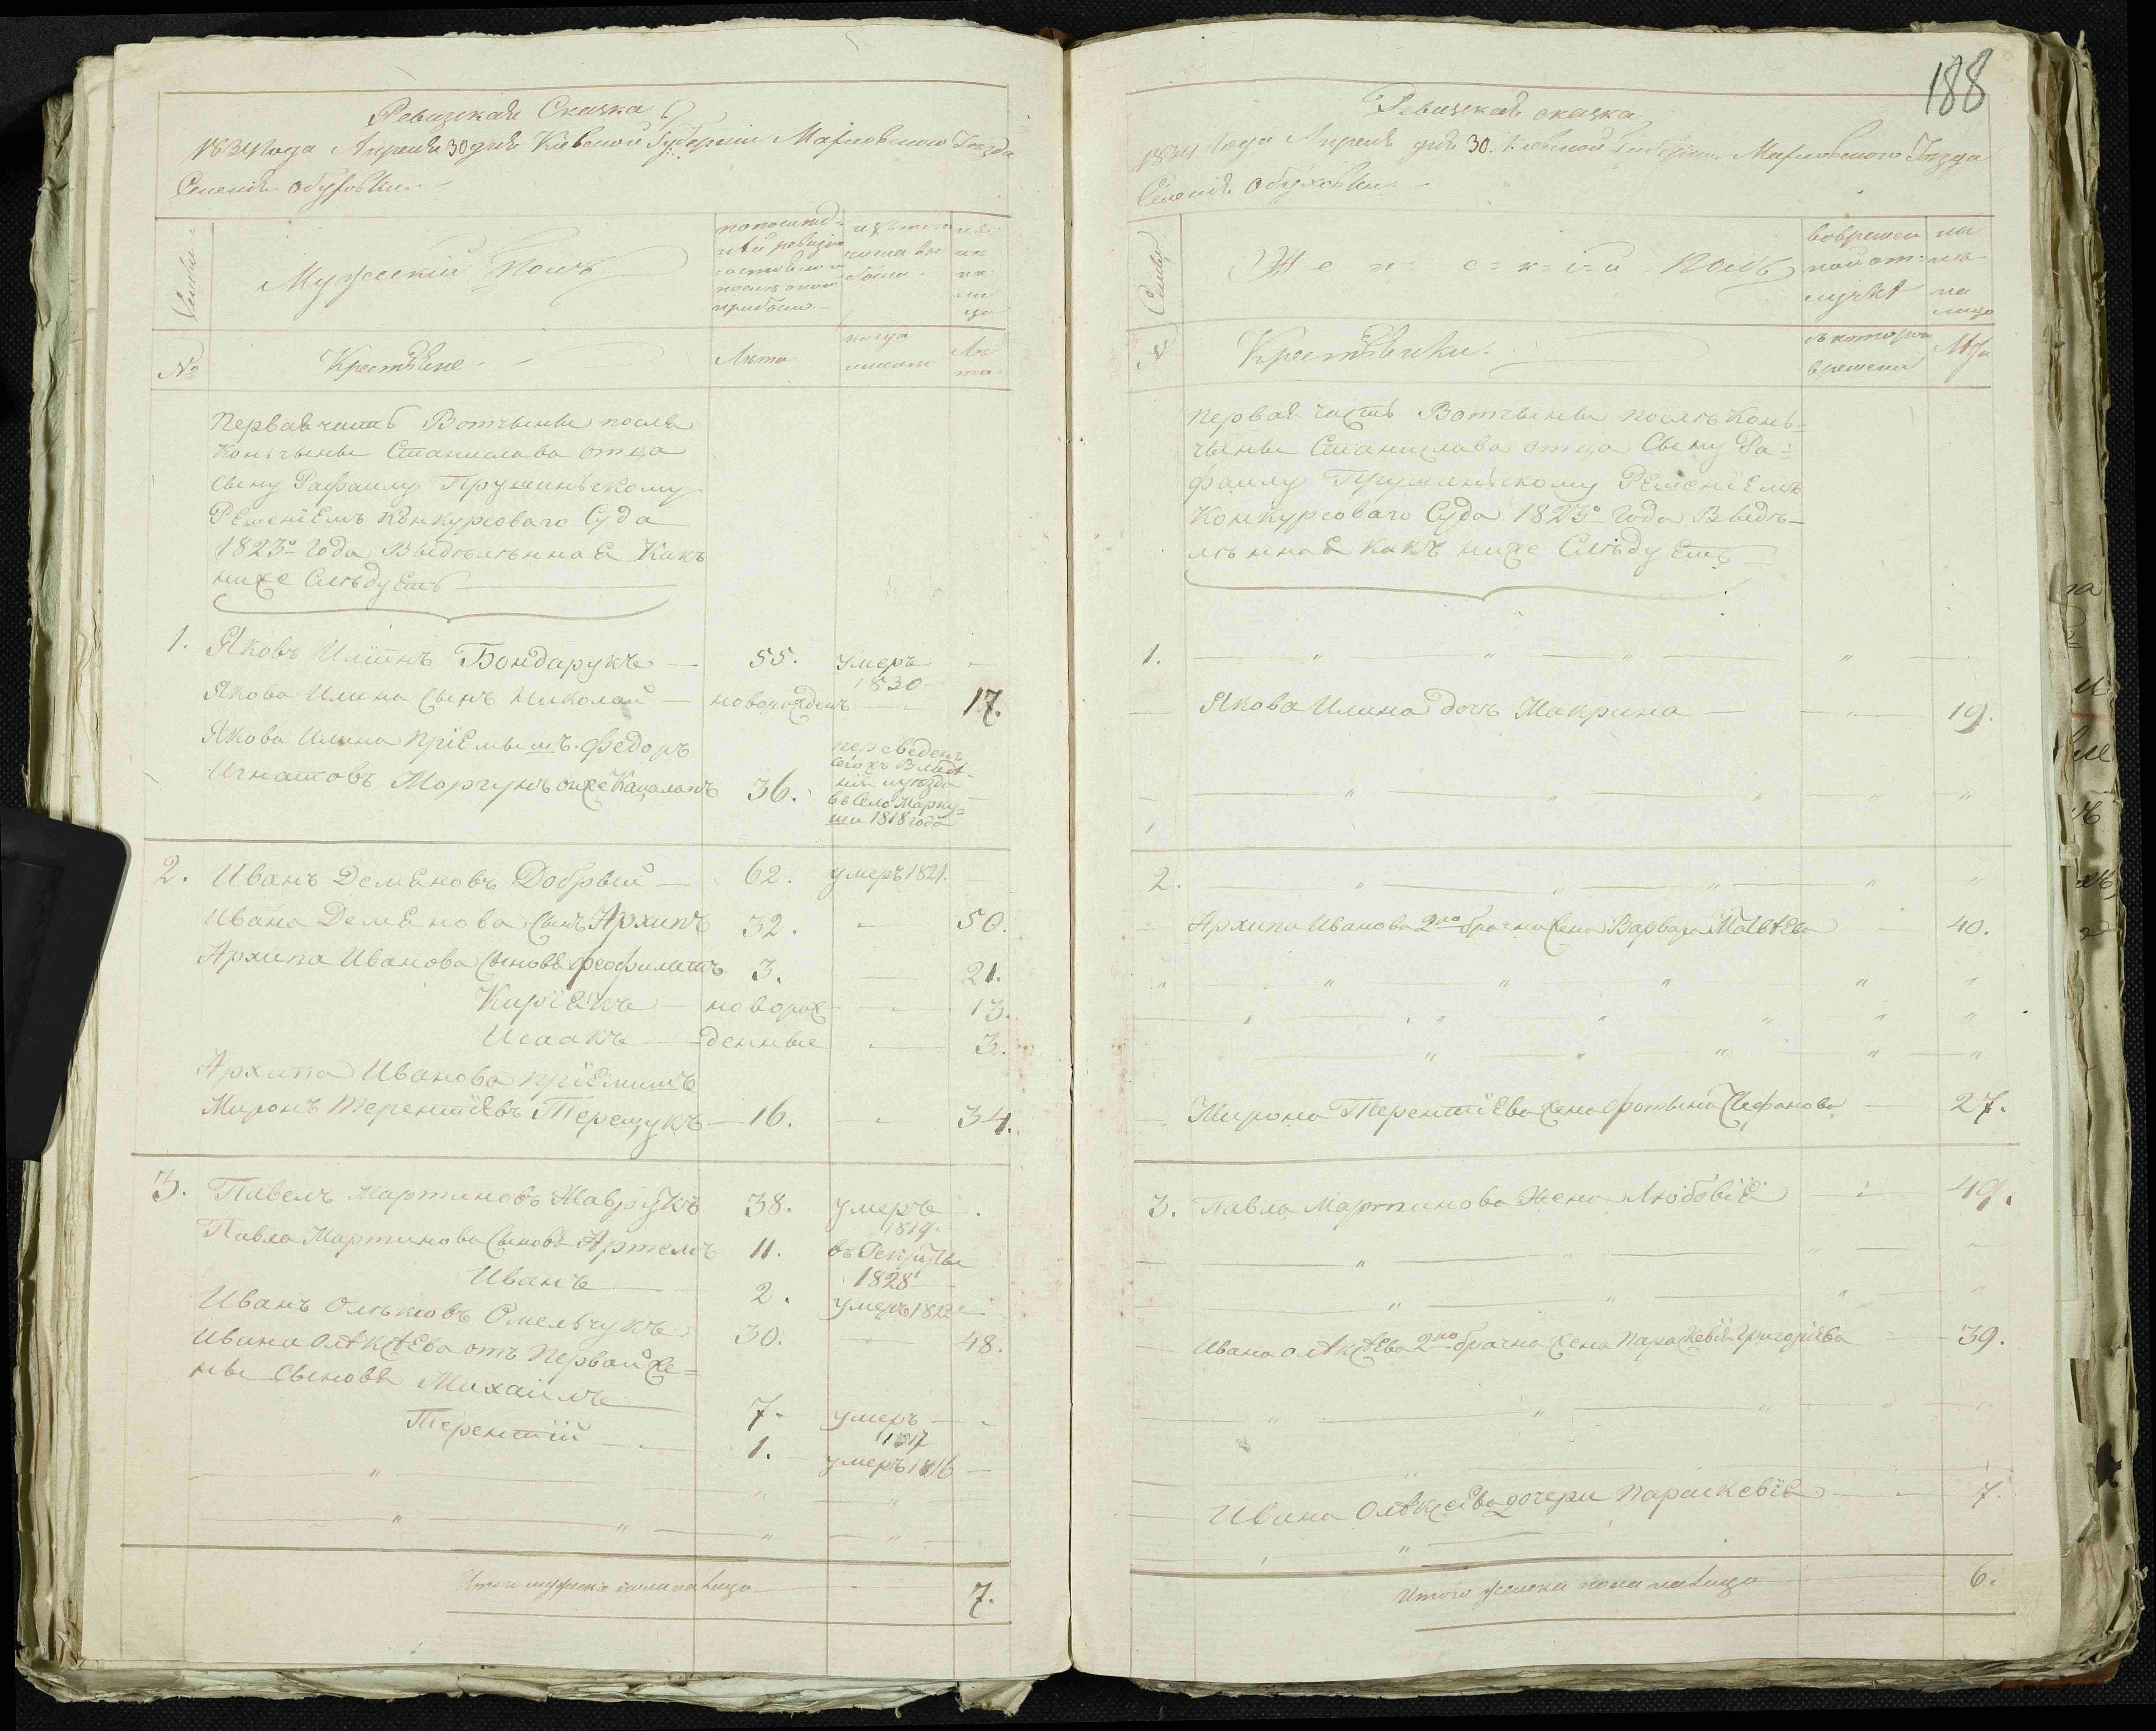 Ревизская Сказка
1834 года Апреля 30 дня Киевской Губернии Махновского Уезда
Селения Обуховки
Семьи
Мужеский Полъ
по последней ревизіи состояло и после оной прибыло
изъ того числа выбыло
ныне на лицо
№
Крестьяне
Лета
когда именно
Лета
Первая часть Вотчыны после
Кончыны Станислава отца
сыну Рафаилу Прушиньскому
Решеніемъ Конкурсоваго Суда
1823го Года Выделенная Какъ
ниже Следуетъ
1. Яковъ Илiинъ Бондарукъ — 55. умеръ 1830
Якова Илина Сынъ Николай — новорожденъ — 17.
Якова Илина пріемышъ Федоръ
Игнатовъ Моргунъ онже Кацаланъ 36. переведенъ
въ Село Марку=
ши 1818 года
2. Иванъ Демяновъ Добрый — 62. умеръ 1821.
Ивана Демянова Сынъ Архипъ 32. 50.
Архипа Иванова Сыновя Феофилатъ 3. 21.
Киріякъ — новорож 13.
Исаакъ — денные 3.
Архипа Иванова пріемышъ
Миронъ Терентіевъ Терещукъ — 16. 34.
3. Павелъ Мартиновъ Маврукъ 38. умеръ 1819.
Павла Мартинова Сыновя Артемъ 11. въ Рекруты 1828
Иванъ 2. умеръ 1822
Иванъ Олексеовъ Омельчукъ 30. 48.
Ивана Олексеева отъ Первой Же=
ны Сыновя Михаилъ 7. умеръ 1817
Терентій 1. умеръ 1816
Итого мужеска пола на лицо 7.
188
Ревизская сказка
1834 Года Апреля дня 30. Киевской Губерніи Махновского Уезда
Селения Обуховки
Семьи
Ж е н = с = к = і = й Полъ
во временной отлучке
ныне на лицо
№
Крестьянки.
съ котораго времени
Лета
Первая часть Вотчыны После Конь=
чыны Станислава отца Сыну Ра=
фаилу Прушиньскому Решеніемъ
Конкурсоваго Суда 1823го Года Выде=
ленная какъ ниже Следуетъ
1.
Якова Илина дочь Макрина 19.
2.
Архипа Иванова 2ро брачна жена Варвара Матвеева 40.
Мирона Терентіева жена Фотына Стефанова 27.
3. Павла Мартинова Жена Любовія 49.
Ивана Олексеева 2ро брачна жена Параскевія Григоріева 39.
Ивана Олексеева дочери Параскевія 7.
Итого женска пола на лицо 6.